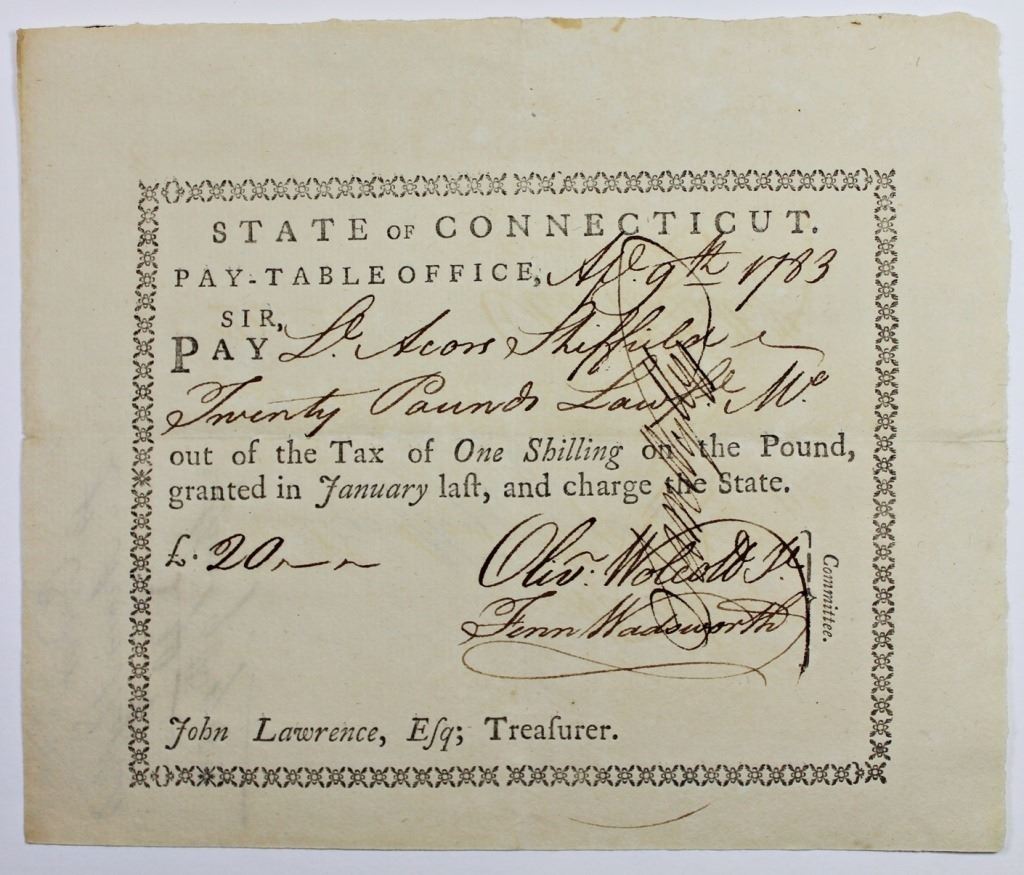 STATE OF CONNECTICUT.
PAY-TABLE OFFICE, 9th 1783
SIR,
PAY Lt. Acors Sheffield
Twenty Pounds Lawfl. Mo
out of the Tax of One Shilling on the Pound,
granted in January laſt, and charge the State.
£. 20
Olivr. Wolcott Jr
Fenn Wadsworth
Committee.
John Lawrence, Eſq; Treaſurer.